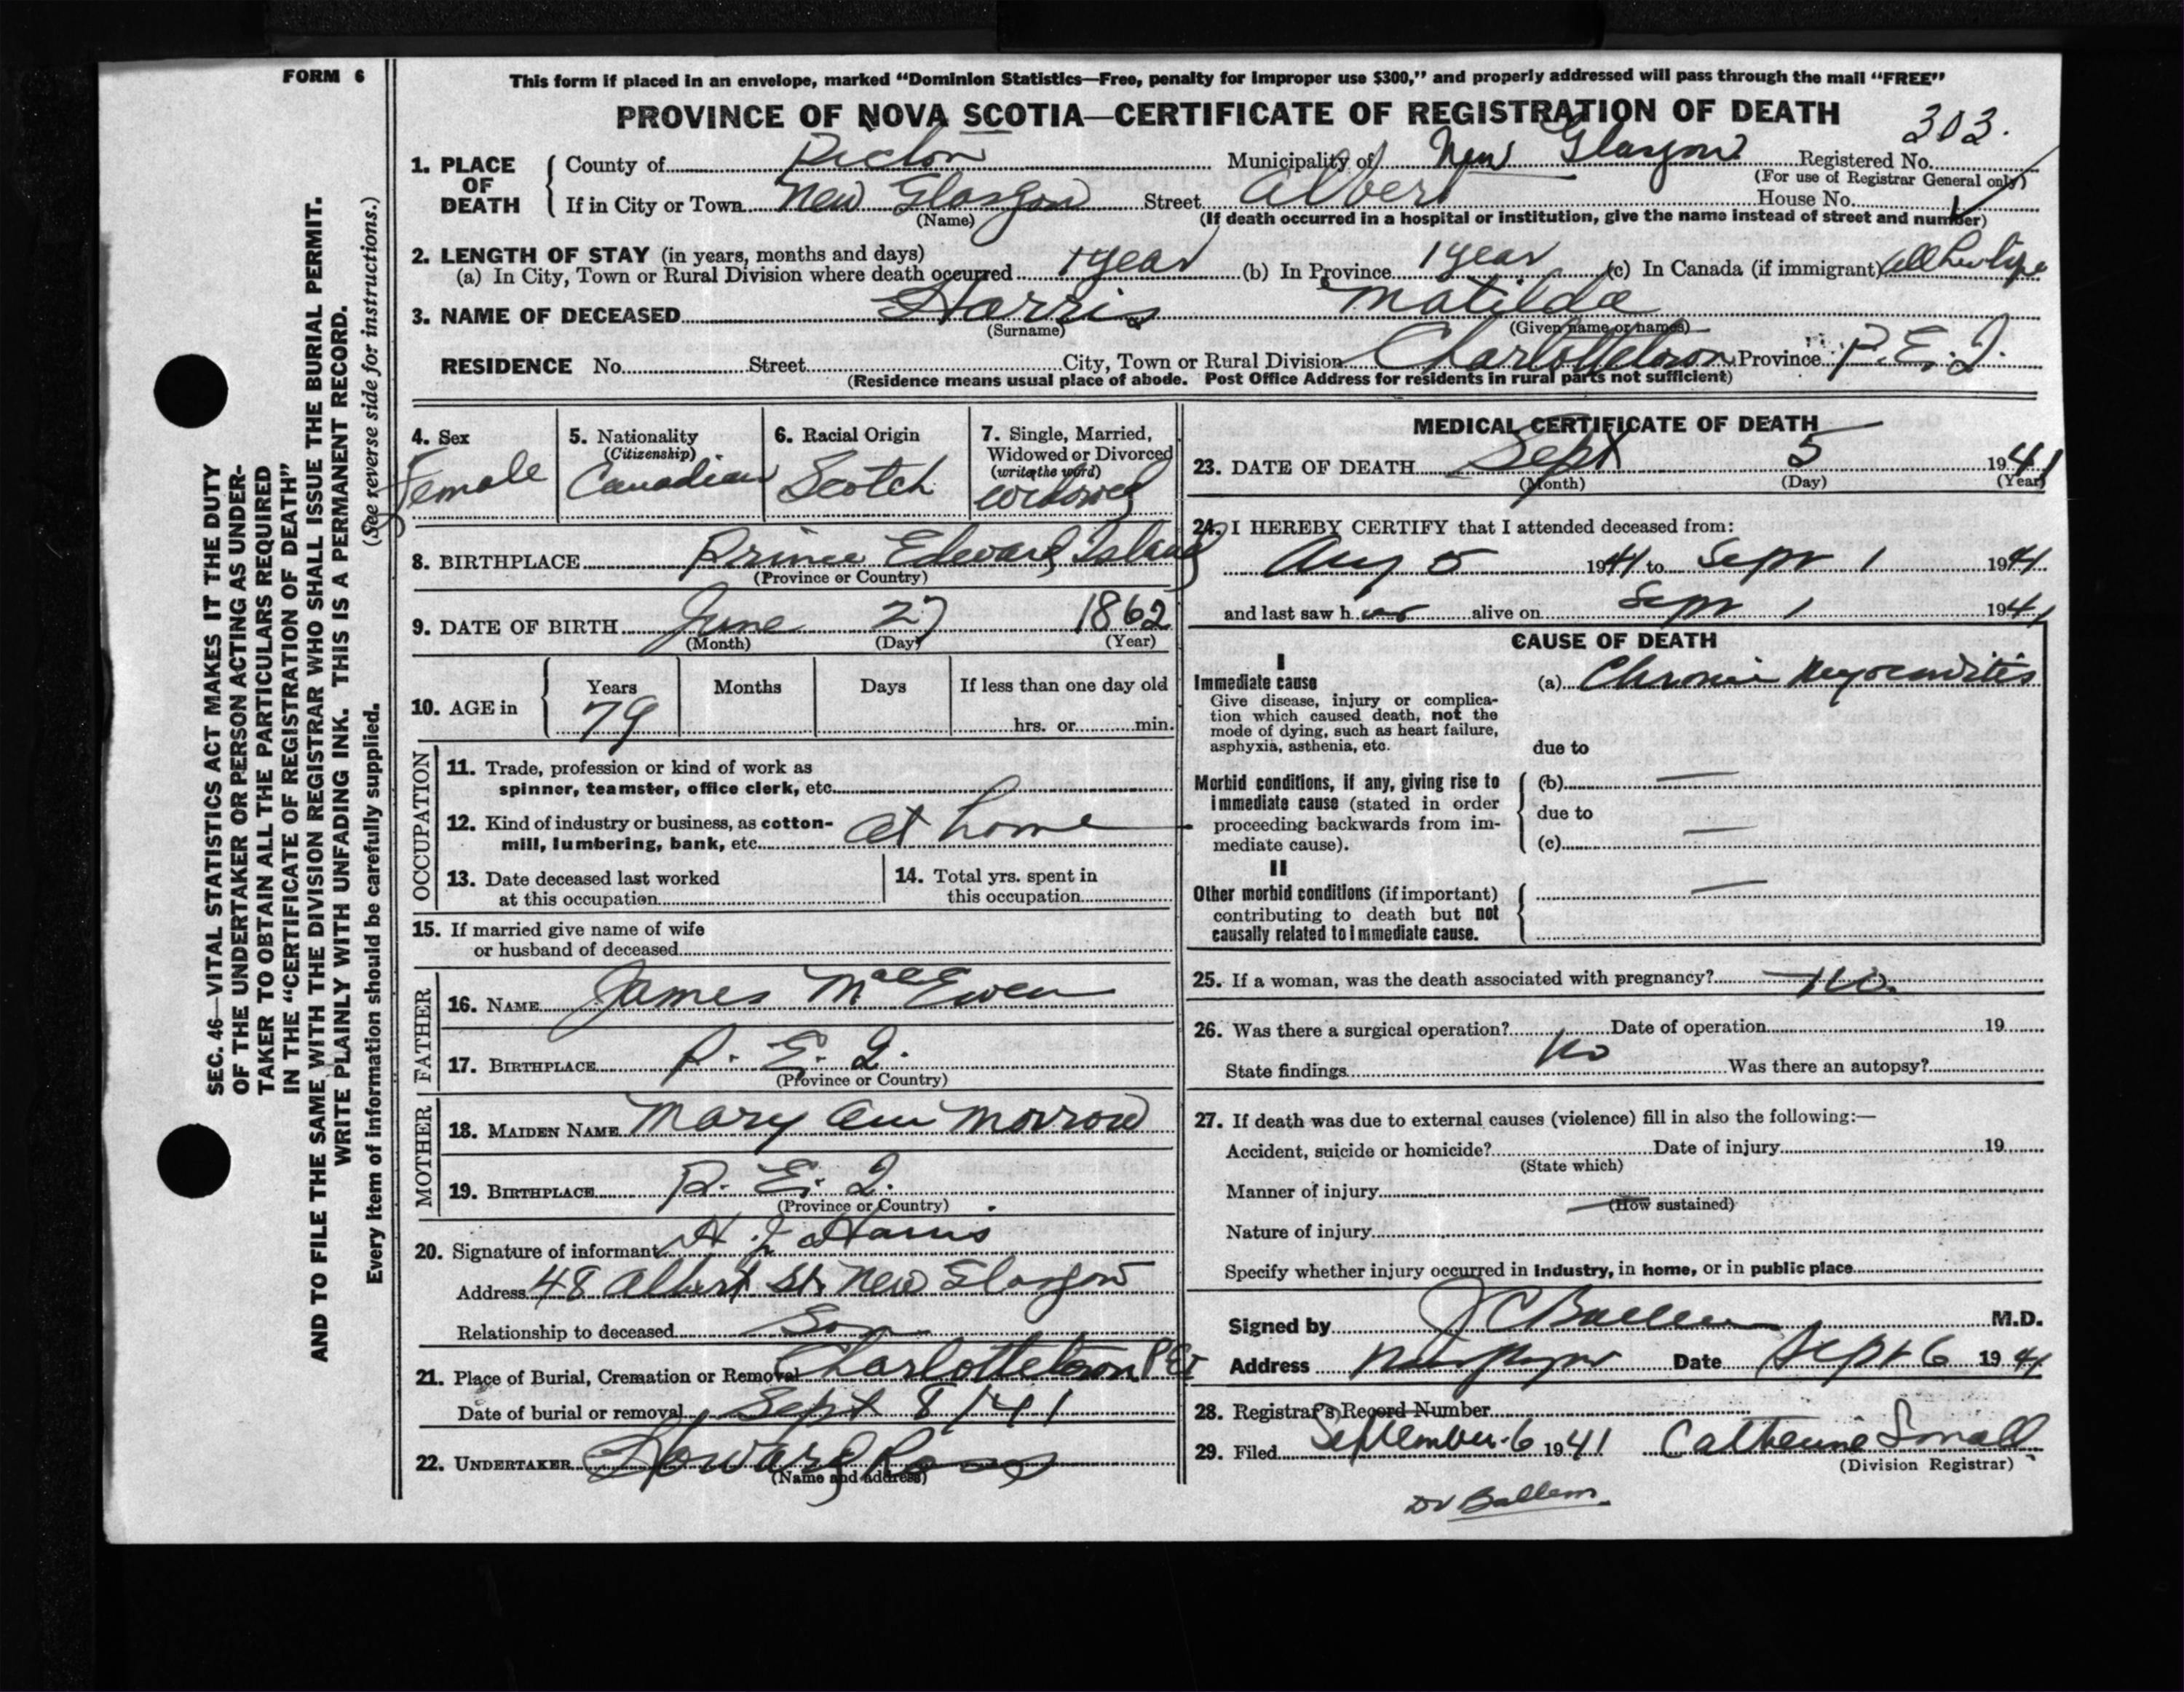 FORM 6
This form if placed in an envelope, marked “Dominion Statistics—Free, penalty for improper use $300,” and properly addressed will pass through the mail “FREE”
PROVINCE OF NOVA SCOTIA—CERTIFICATE OF REGISTRATION OF DEATH
303.
1. PLACE OF DEATH
County of Pictou Municipality of New Glasgow Registered No.
(For use of Registrar General only)
If in City or Town New Glasgow Street Albert House No.
(Name)
(If death occurred in a hospital or institution, give the name instead of street and number)
2. LENGTH OF STAY (in years, months and days)
(a) In City, Town or Rural Division where death occurred 1 year (b) In Province 1 year (c) In Canada (if immigrant) all her life
3. NAME OF DECEASED Harris Matilda
(Surname) (Given name or names)
RESIDENCE No. Street City, Town or Rural Division Charlottetown Province P.E.I.
(Residence means usual place of abode. Post Office Address for residents in rural parts not sufficient)
4. Sex
Female
5. Nationality
(Citizenship)
Canadian
6. Racial Origin
Scotch
7. Single, Married,
Widowed or Divorced
(write the word)
widowed
8. BIRTHPLACE Prince Edward Island
(Province or Country)
9. DATE OF BIRTH June 27 1862
(Month) (Day) (Year)
10. AGE in
Years Months Days If less than one day old
79 hrs. or min.
OCCUPATION
11. Trade, profession or kind of work as
spinner, teamster, office clerk, etc.
12. Kind of industry or business, as cotton-
mill, lumbering, bank, etc. at home
13. Date deceased last worked
at this occupation
14. Total yrs. spent in
this occupation
15. If married give name of wife
or husband of deceased
FATHER
16. NAME James MacEwen
17. BIRTHPLACE P. E. I.
(Province or Country)
MOTHER
18. MAIDEN NAME Mary Ann Morrow
19. BIRTHPLACE P. E. I.
(Province or Country)
20. Signature of informant H J Harris
Address 48 Albert St. New Glasgow
Relationship to deceased Son
21. Place of Burial, Cremation or Removal Charlottetown PEI
Date of burial or removal Sept 8/41
22. UNDERTAKER Howard Ross
(Name and address)
MEDICAL CERTIFICATE OF DEATH
23. DATE OF DEATH Sept 5 1941
(Month) (Day) (Year)
24. I HEREBY CERTIFY that I attended deceased from:
Aug 5 1941 to Sept 1 1941
and last saw her alive on Sept 1 1941
CAUSE OF DEATH
I
Immediate cause
Give disease, injury or complica-
tion which caused death, not the
mode of dying, such as heart failure,
asphyxia, asthenia, etc.
(a) Chronic Myocarditis
due to
Morbid conditions, if any, giving rise to
immediate cause (stated in order
proceeding backwards from im-
mediate cause).
(b) —
due to
(c) —
II
Other morbid conditions (if important)
contributing to death but not
causally related to immediate cause.
—
25. If a woman, was the death associated with pregnancy? No.
26. Was there a surgical operation? No Date of operation 19
State findings Was there an autopsy?
27. If death was due to external causes (violence) fill in also the following:—
Accident, suicide or homicide? Date of injury 19
(State which)
Manner of injury
(How sustained)
Nature of injury
Specify whether injury occurred in industry, in home, or in public place
Signed by J C Ballem M.D.
Address New Glasgow Date Sept 6 1941
28. Registrar's Record Number
29. Filed September 6 1941 Catherine Small
(Division Registrar)
Dr Ballem
SEC. 46—VITAL STATISTICS ACT MAKES IT THE DUTY
OF THE UNDERTAKER OR PERSON ACTING AS UNDER-
TAKER TO OBTAIN ALL THE PARTICULARS REQUIRED
IN THE “CERTIFICATE OF REGISTRATION OF DEATH”
AND TO FILE THE SAME WITH THE DIVISION REGISTRAR WHO SHALL ISSUE THE BURIAL PERMIT.
WRITE PLAINLY WITH UNFADING INK. THIS IS A PERMANENT RECORD.
Every item of information should be carefully supplied. (See reverse side for instructions.)